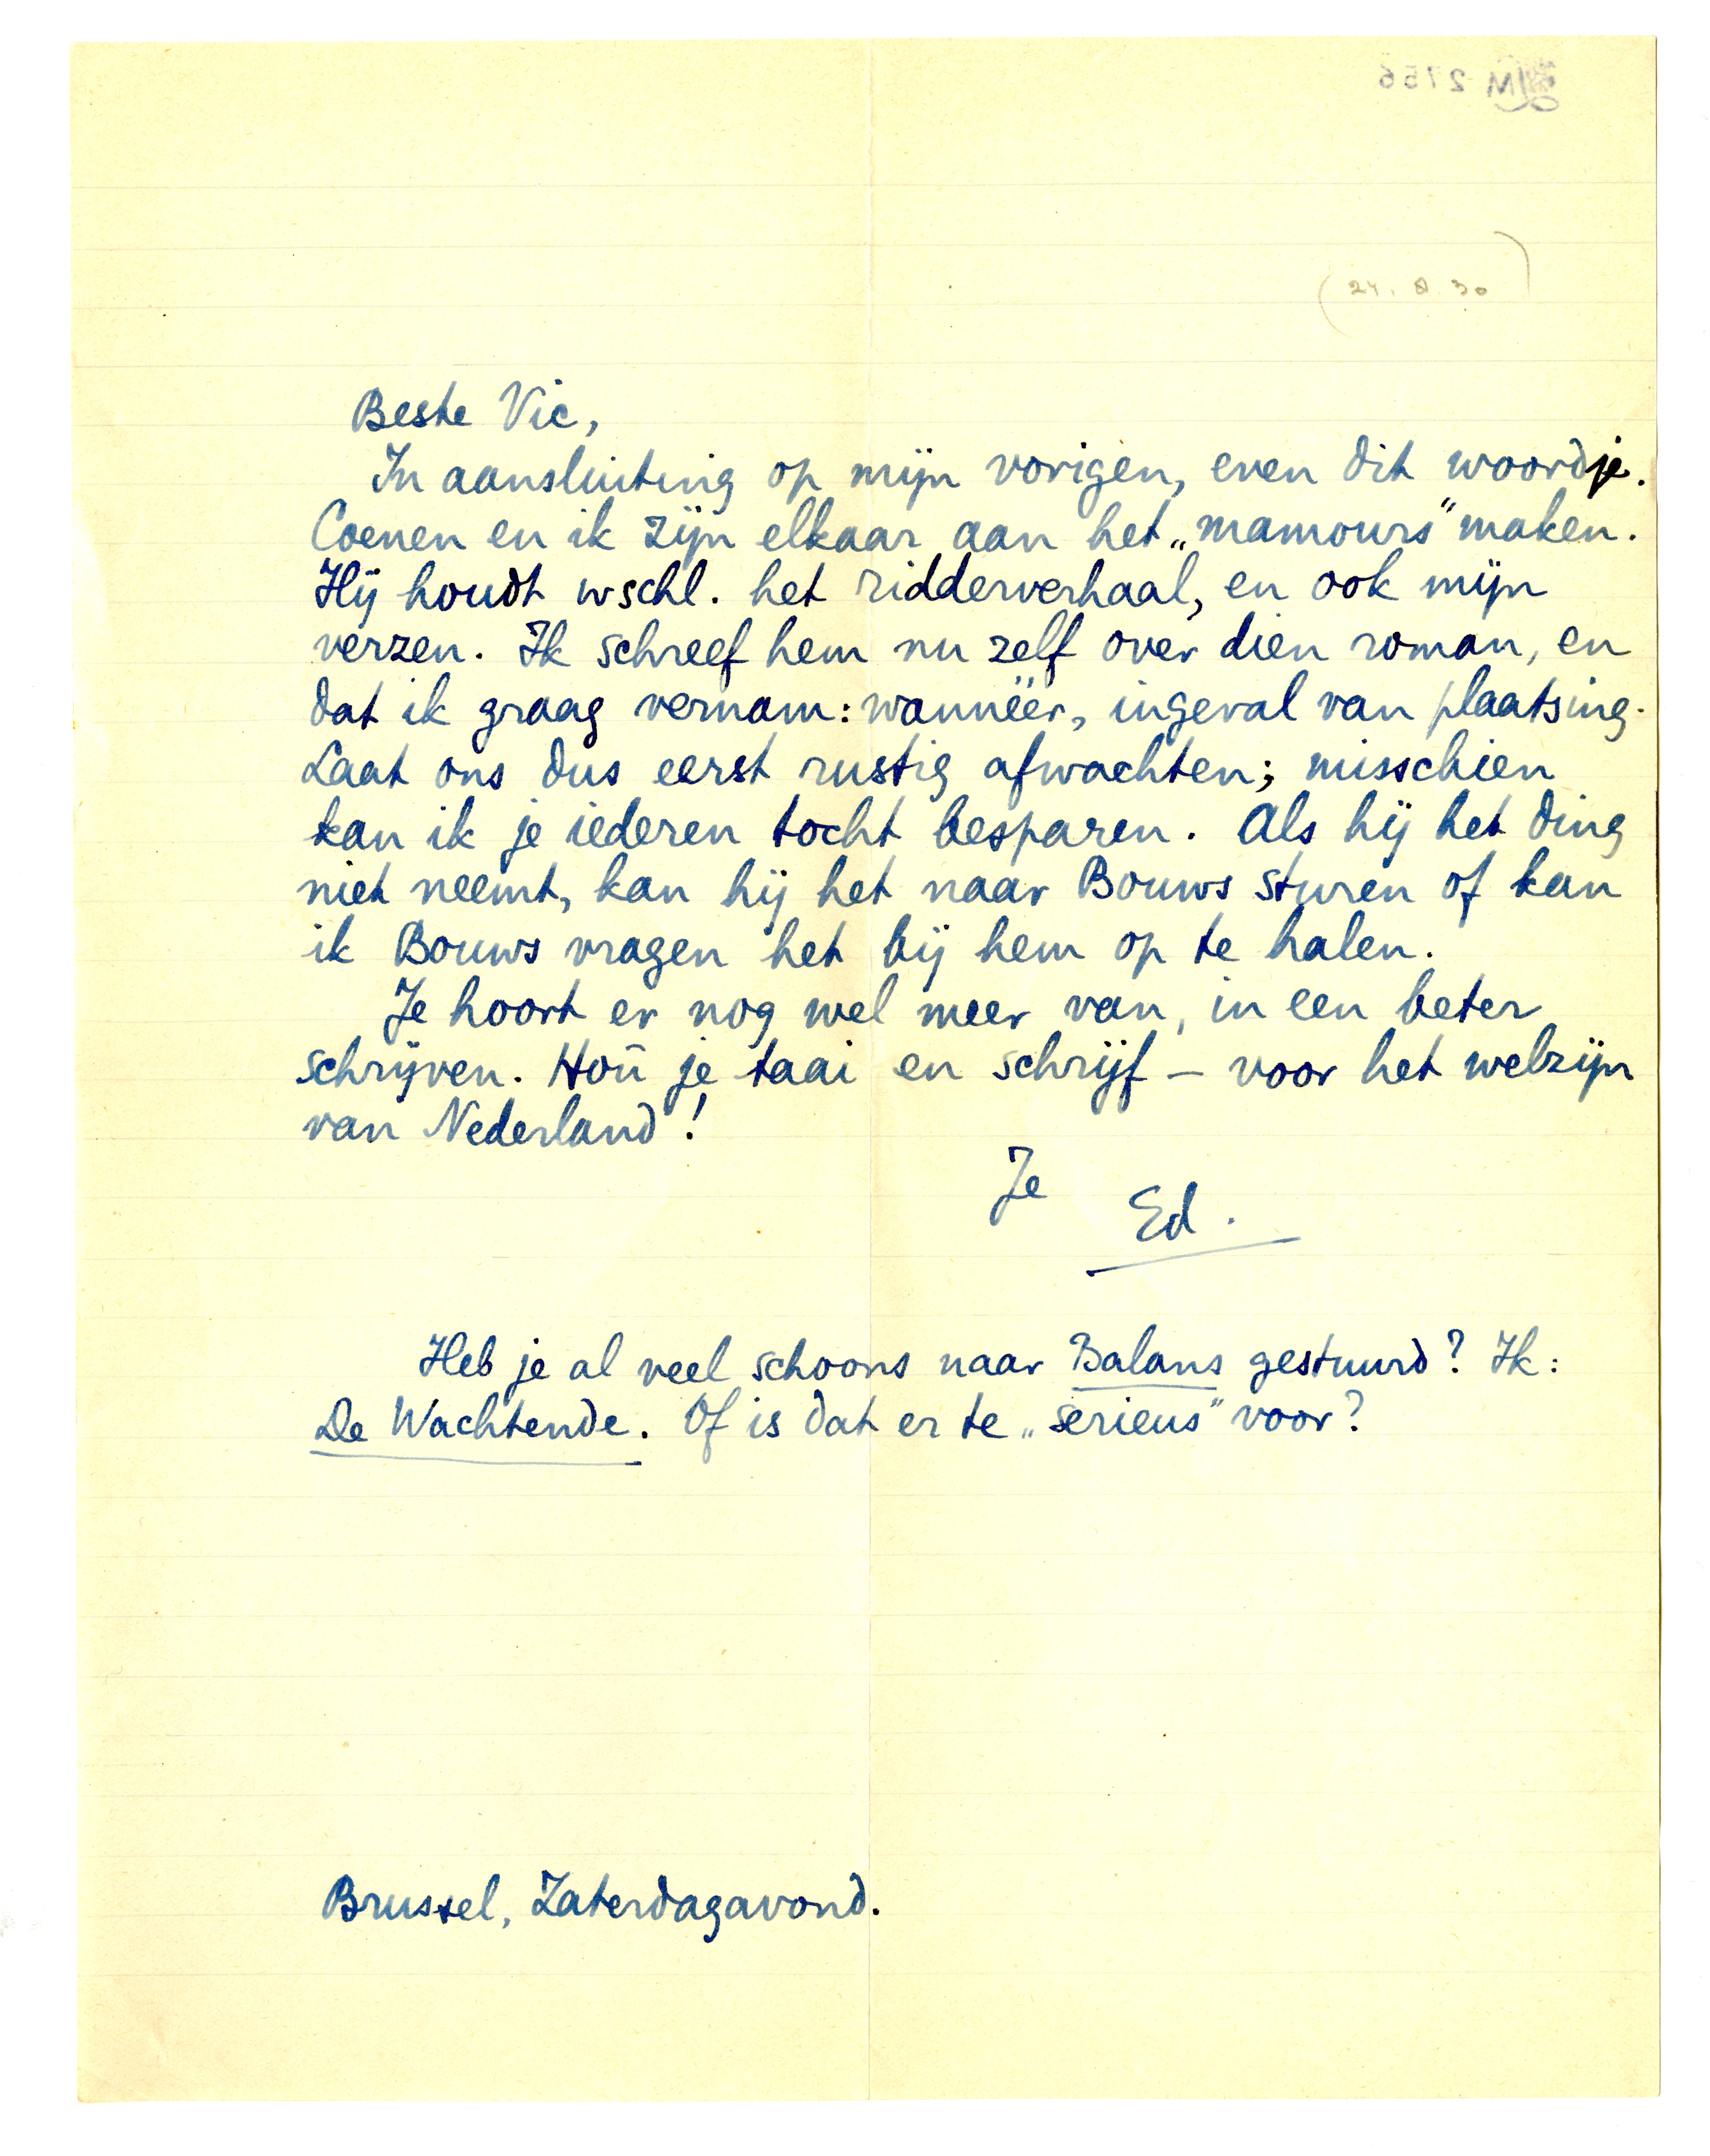 (24. 8 30)
Beste Vic,
In aansluiting op mijn vorigen, even dit woordje.
Coenen en ik zijn elkaar aan het „mamours” maken.
Hij houdt wschl. het ridderverhaal, en ook mijn
verzen. Ik schreef hem nu zelf over dien roman, en
dat ik graag vernam: wannéér, ingeval van plaatsing.
Laat ons dus eerst rustig afwachten; misschien
kan ik je iederen tocht besparen. Als hij het ding
niet neemt, kan hij het naar Bouws sturen of kan
ik Bouws vragen het bij hem op te halen.
Je hoort er nog wel meer van, in een beter
schrijven. Hou je taai en schrijf – voor het welzijn
van Nederland!
Je
Ed.
Heb je al veel schoons naar Balans gestuurd? Ik:
De Wachtende. Of is dat er te „serieus” voor?
Brussel, Zaterdagavond.